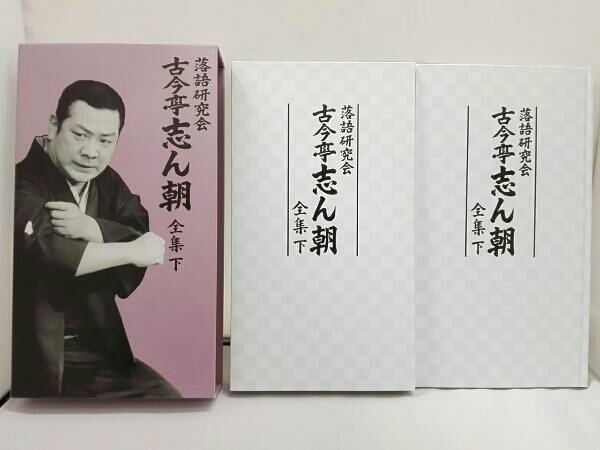 落語研究会
古今亭志ん朝
全集 下
落語研究会
古今亭志ん朝
全集 下
落語研究会
古今亭志ん朝
全集 下